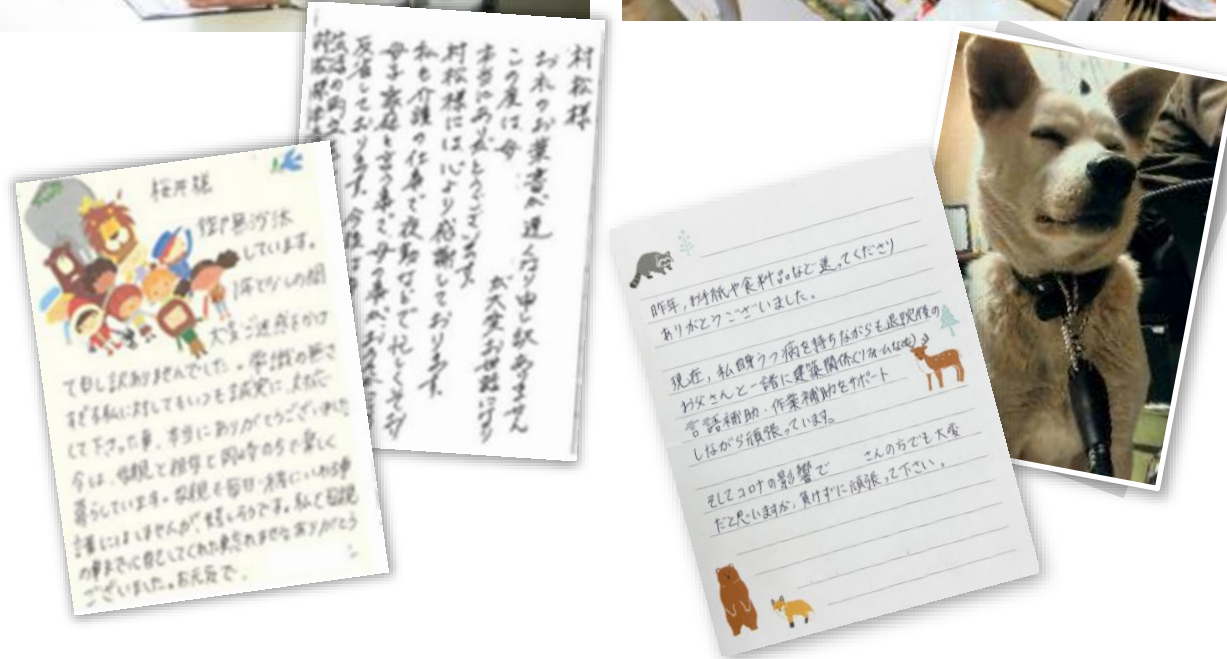 桜井様
御無沙汰
しています。
1年と少しの間
大変ご迷惑をかけ
て申し訳ありませんでした。常識の無さ
すぎる私に対してもいつも誠実に、対応
して下さった事、本当にありがとうございました
今は、母親と祖母と同時のちで楽しく
暮らしています。母親も毎日一緒にいれる事
誰にはしませんが、嬉しそうです。私と母親
の事までに
ございました。お元気で。
村松様
お米のお葉書が遅くなり申し訳ありません
この度は母 が大変お世話になり
本当にありがとうございます。
村松様には心より感謝しております。
私も介護の仕事で夜勤などで忙しくそれが
母子家庭と言う事で、母の事が、
反省しております。今後は
生活の両立
昨年、お手紙や食料品など送ってくださり
ありがとうございました。
現在、私自身うつ病を持ちながらも退院後の
お父さんと一緒に建築関係(リフォームなども)の
言語補助・作業補助をサポート
しながら頑張っています。
そしてコロナの影響で さんの方でも大変
だと思いますが、負けずに頑張って下さい。